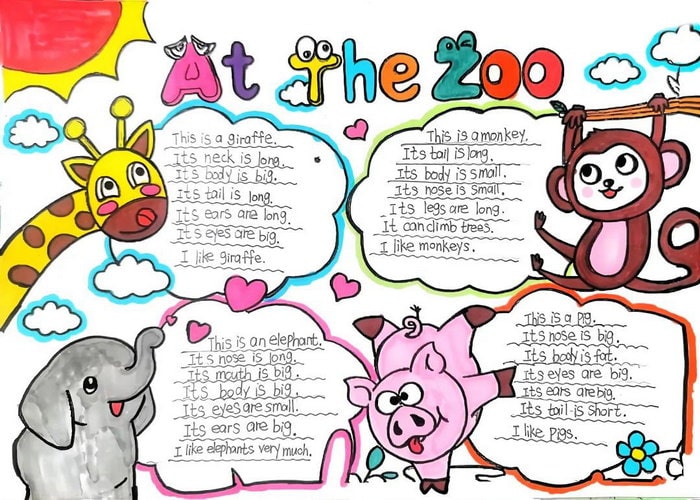 At The Zoo
This is a giraffe.
Its neck is long.
Its body is big.
Its tail is long.
Its ears are long.
Its eyes are big.
I like giraffe.
This is a monkey.
Its tail is long.
Its body is small.
Its nose is small.
Its legs are long.
It can climb trees.
I like monkeys.
This is an elephant.
Its nose is long.
Its mouth is big.
Its body is big.
Its eyes are small.
Its ears are big.
I like elephants very much.
This is a pig.
Its nose is big.
Its body is fat.
Its eyes are big.
Its ears are big.
Its tail is short.
I like pigs.